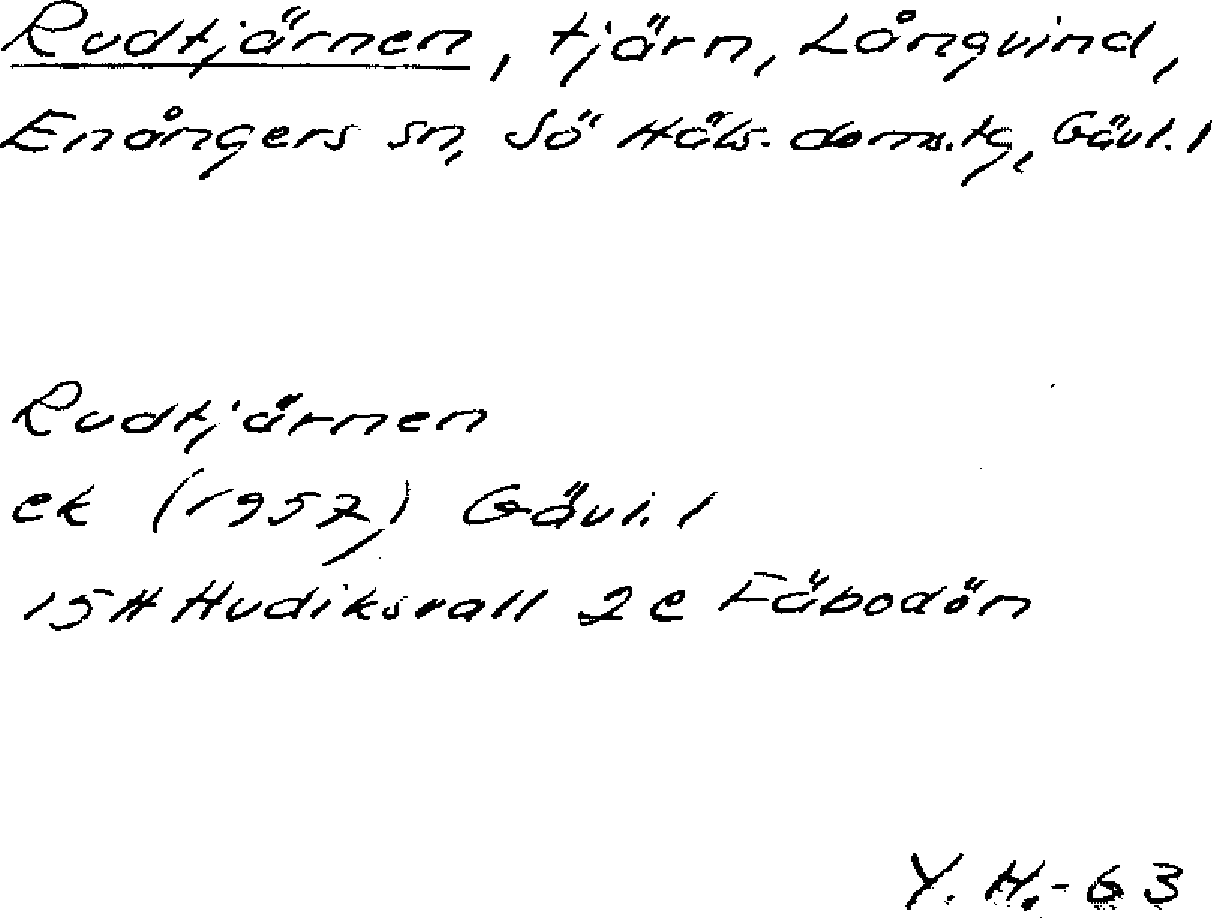 Rudtjärnen, tjärn, Långvind,
Enångers sn, Sö Häls. doms.tg, Gävl. l
Rudtjärnen
ek (1957) Gävl. l
15H Hudiksvall 2e Fäbodön
Y. H.-63